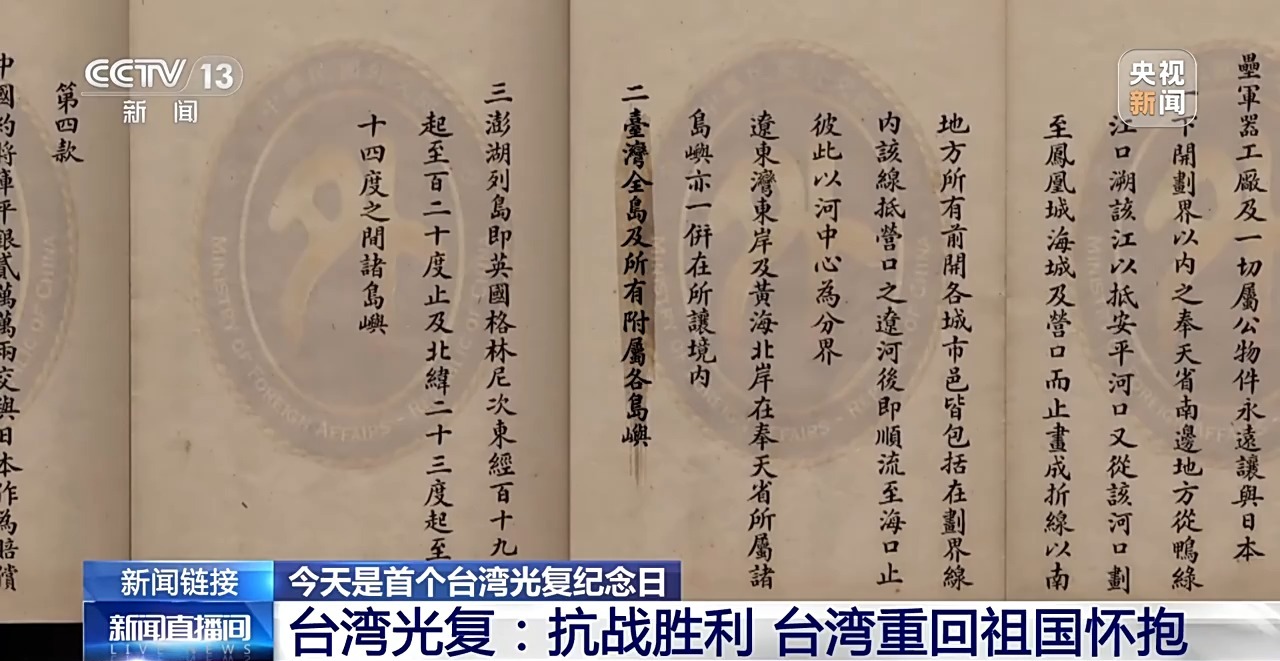 CCTV 13
新闻
央视
新闻
壘軍器工廠及一切屬公物件永遠讓與日本
下開劃界以內之奉天省南邊地方從鴨綠
江口溯該江以抵安平河口又從該河口劃
至鳳凰城海城及營口而止畫成折線以南
地方所有前開各城市邑皆包括在劃界線
內該線抵營口之遼河後即順流至海口止
彼此以河中心為分界
遼東灣東岸及黃海北岸在奉天省所屬諸
島嶼亦一併在所讓境內
二臺灣全島及所有附屬各島嶼
三澎湖列島即英國格林尼次東經百十九
起至百二十度止及北緯二十三度起至
十四度之間諸島嶼
第四款
中國約將庫平銀貳萬萬兩交與日本作為賠償
MINISTRY OF FOREIGN AFFAIRS
新闻链接
今天是首个台湾光复纪念日
新闻直播间
LIVE NEWS
台湾光复：抗战胜利 台湾重回祖国怀抱